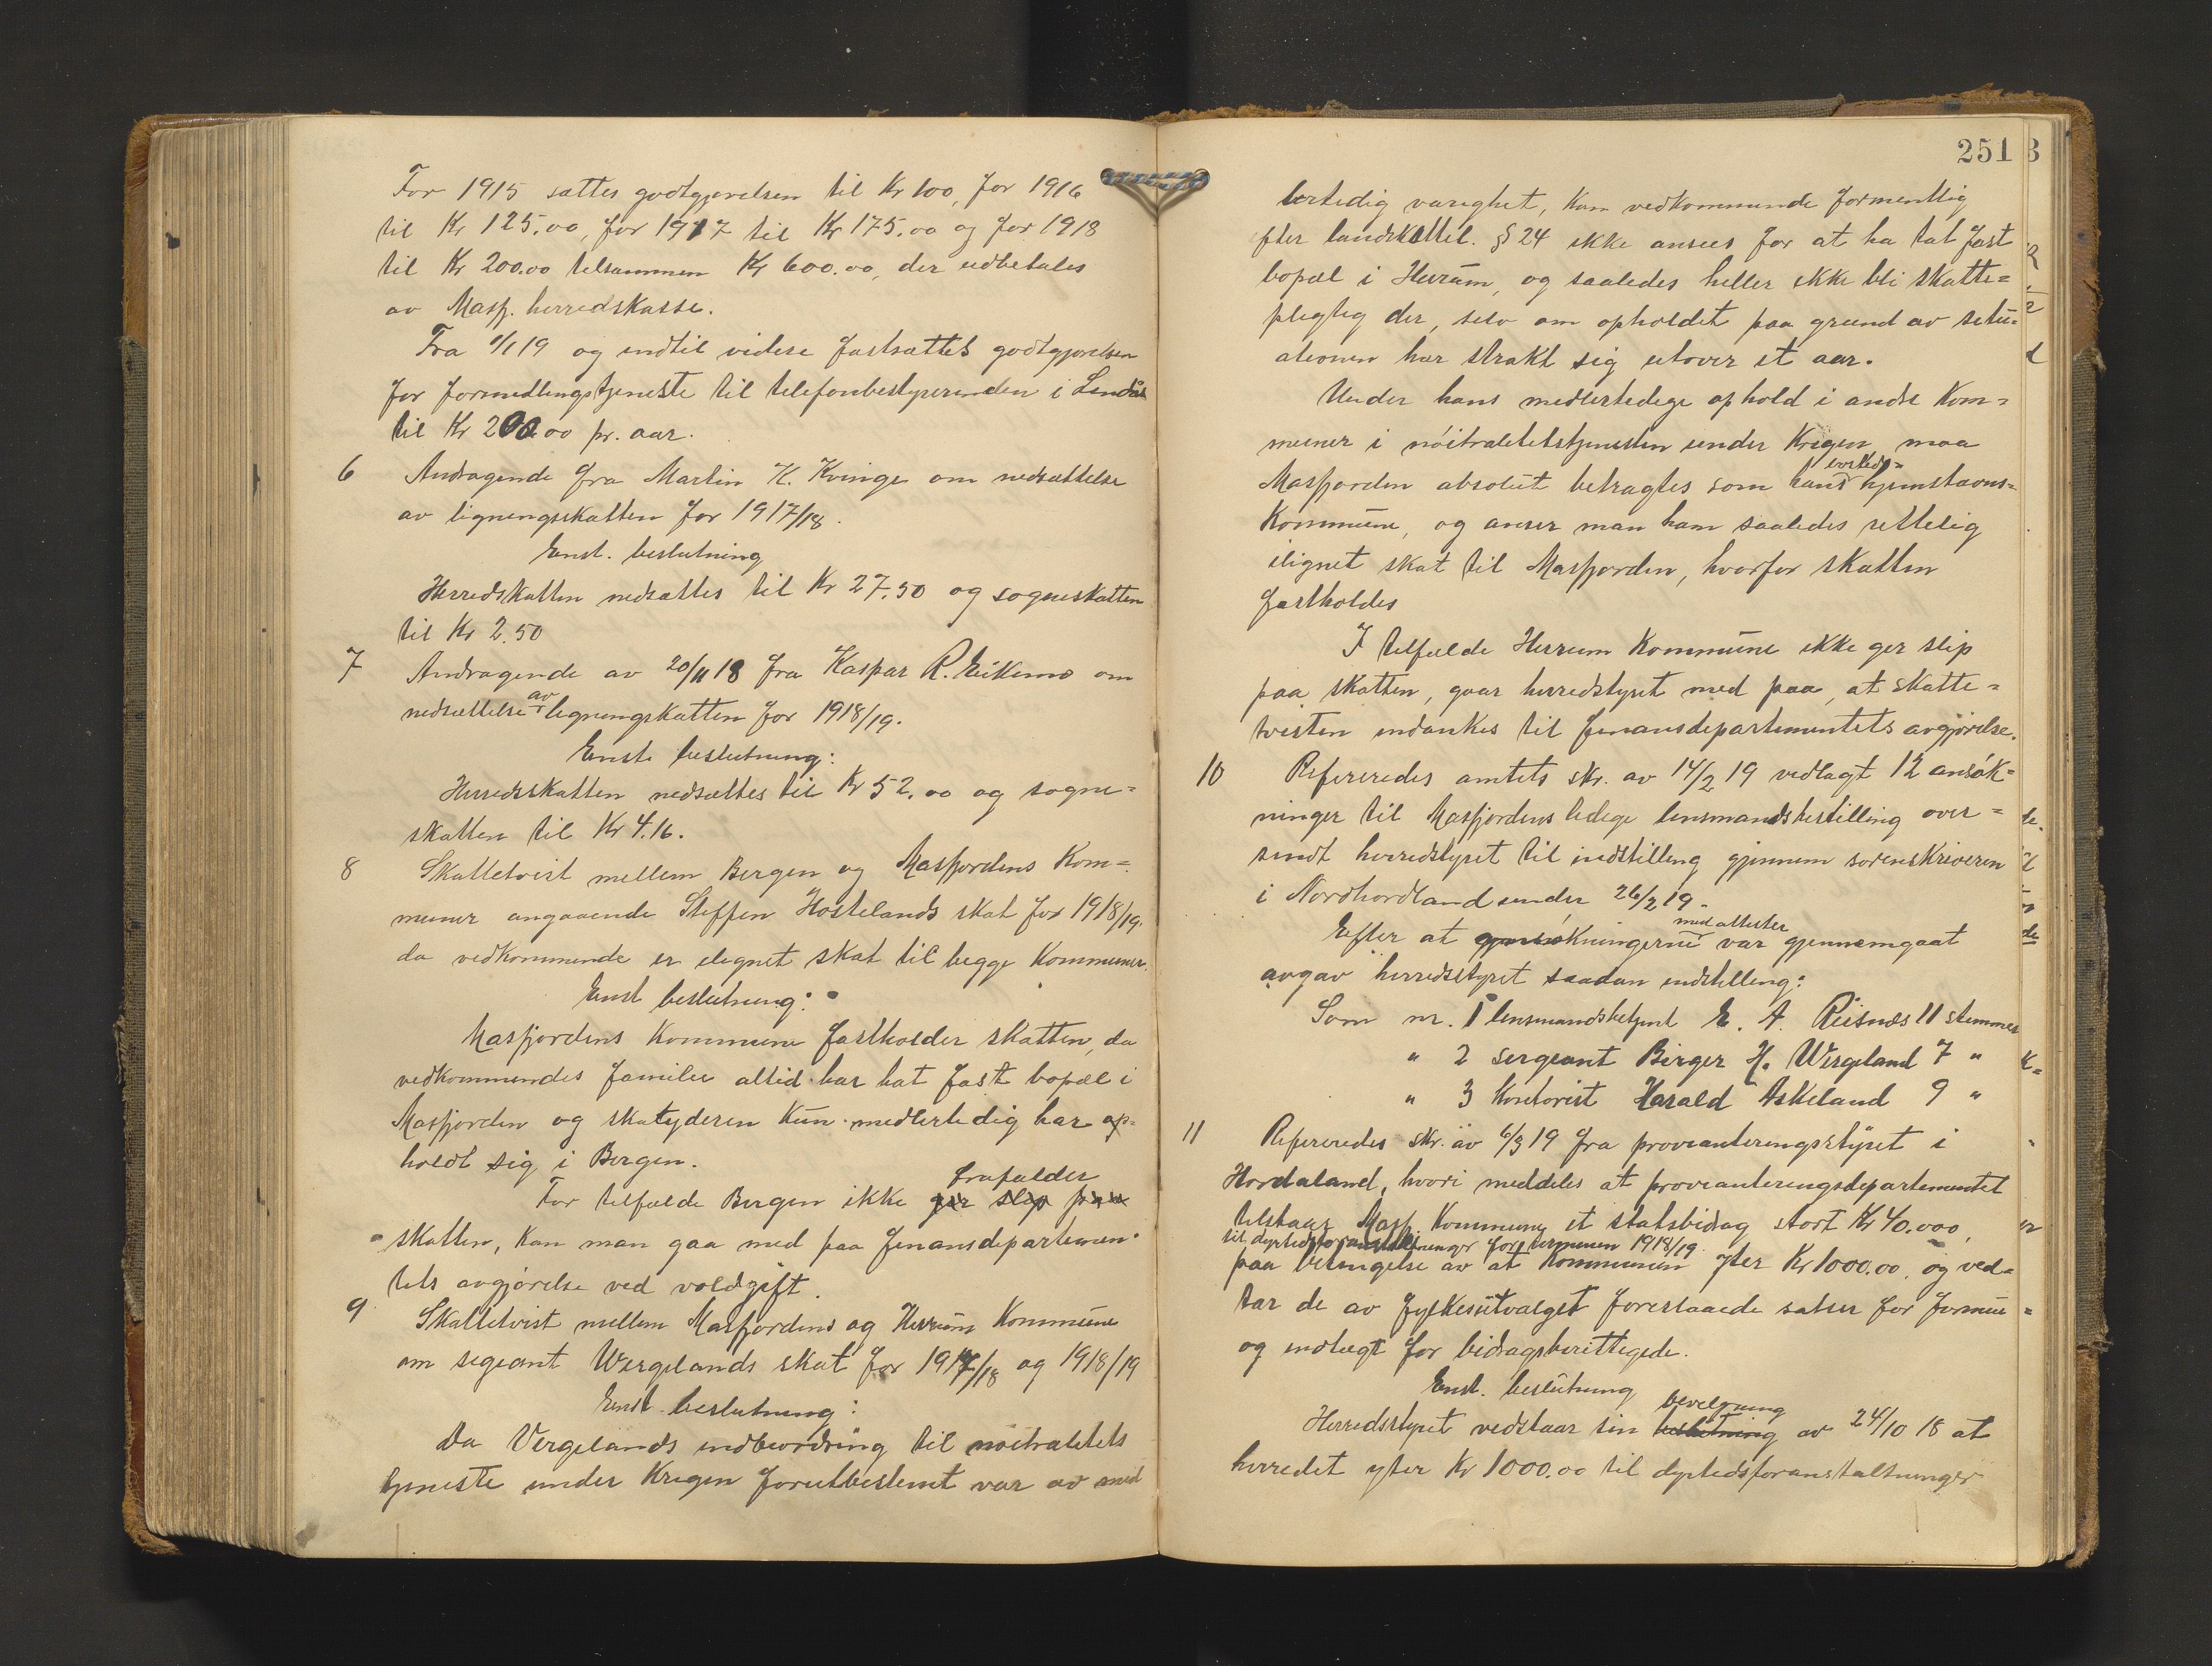 For 1915 sættes godtgjørelsen til Kr 100, for 1916
til Kr 125.00, for 1917 til Kr 175.00 og for 1918
til Kr 200.00 tilsammen Kr 600.00, der udbetales
av Masf. herredskasse.
Fra 1/1 19 og indtil videre fastsættes godtgjørelsen
for formedlingstjeneste til telefonbestyrerinden i Lindås
til Kr 200.00 pr. aar.
6 Andragende fra Martin K. Kvinge om nedsættelse
av ligningsskatten for 1917/18.
Enst. beslutning
Herredskatten nedsættes til Kr 27.50 og sogneskatten
til Kr 2.50
7 Andragende av 20/11 18 fra Kaspar R. Eikemo om
nedsættelse av ligningskatten for 1918/19.
Enst. beslutning:
Herredsskatten nedsættes til Kr 52.00 og sogne=
skatten til Kr 4.16.
8 Skattetvist mellem Bergen og Masfjordens Kom=
muner angaaende Steffen Hostelands skat for 1918/19.
da vedkommende er ilignet skat til begge Kommuner.
Enst beslutning:
Masfjordens Kommune fastholder skatten, da
vedkommendes familie altid har hat fast bopæl i
Masfjorden og skatyderen kun medlertidig har op=
holdt sig i Bergen.
For tilfælde Bergen ikke ger slip paa frafalder
skatten, kan man gaa med paa finansdepartemen=
tets avgjørelse ved voldgift.
9 Skattetvist mellem Masfjordens og Hurum Kommune
om segeant Wergelands skat for 1917/18 og 1918/19
Enst beslutning:
Da Vergelands indbeordring til nøitralitets
tjeneste under Krigen forutbestemt var av mid
251
lertidig varighet, kan vedkommende formentlig
efter landskattel. § 24 ikke ansees for at ha tat fast
bopæl i Hurum, og saaledes heller ikke bli skatte=
plegtig der, selv om opholdet paa grund av situ=
ationen har strakt sig utover et aar.
Under hans medlertidige ophold i andre Kom=
muner i nöitralitetstjenesten under Krigen maa
Masfjorden absolut betragtes som hans hjemstavns=
Kommune, og anser man ham saaledes rettelig
ilignet skat til Masfjorden, hvorfor skatten
fastholdes
I tilfælde Hurum Kommune ikke ger slip
paa skatten, gaar herredstyret med paa, at skatte=
tvisten indankes til finansdepartementets avgjørelse.
10 Refereredes amtets skr. av 14/2 19 vedlagt 12 ansøk=
ninger til Masfjordens ledige lensmandsbestilling over=
sendt herredstyret til indstilling gjennem sorenskriveren
i Nordhordland under 26/2 19.
Efter at ansøkningerne med attester var gjennemgaat
avgav herredsstyret saadan indstilling:
Som nr. 1 lensmandsbetjent E. A. Riisnes 11 stemmer
" 2 sergeant Birger H. Wergeland 7 "
" 3 Kontorist Harald Askeland 9 "
11 Refereredes skr. av 6/3 19 fra provianteringsstyret i
Hordaland, hvori meddeles at provianteringsdepartementet
tilstaar Masf. Kommune et statsbidrag stort Kr 40.000,
til dyrtidsforanstaltninger for terminen 1918/19
paa betingelse av at Kommunen yter Kr 1000.00. og ved=
tar de av fylkesutvalget foreslaaede satser for formue=
og indtægt for bidragsberettigede.
Enst. beslutning
Herredsstyret vedstaar sin beslutning bevilgning av 24/10 18 at
herredet yter Kr 1000.00 til dyrtidsforanstaltninger